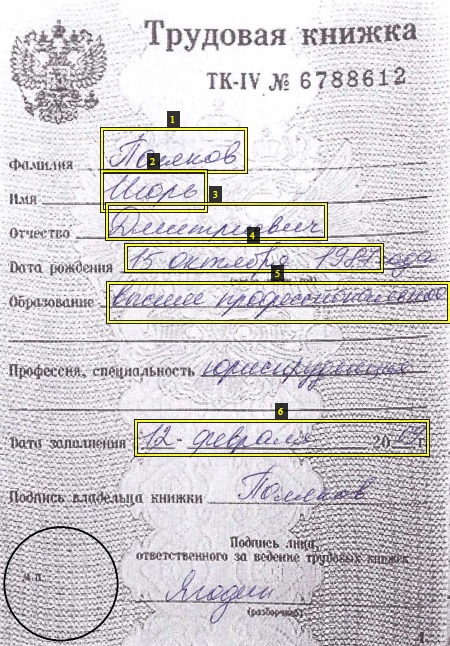 Трудовая книжка
ТК-IV № 6788612
1
Фамилия Поляков
2
Имя Игорь
3
Отчество Дмитриевич
4
Дата рождения 15 октября 1987 года
5
Образование высшее профессиональное
Профессия, специальность юриспруденция
6
Дата заполнения 12 - февраля 2019 г.
Подпись владельца книжки Поляков
Подпись лица,
ответственного за ведение трудовых книжек
М.П.
Ягодин
(разборчиво)
1